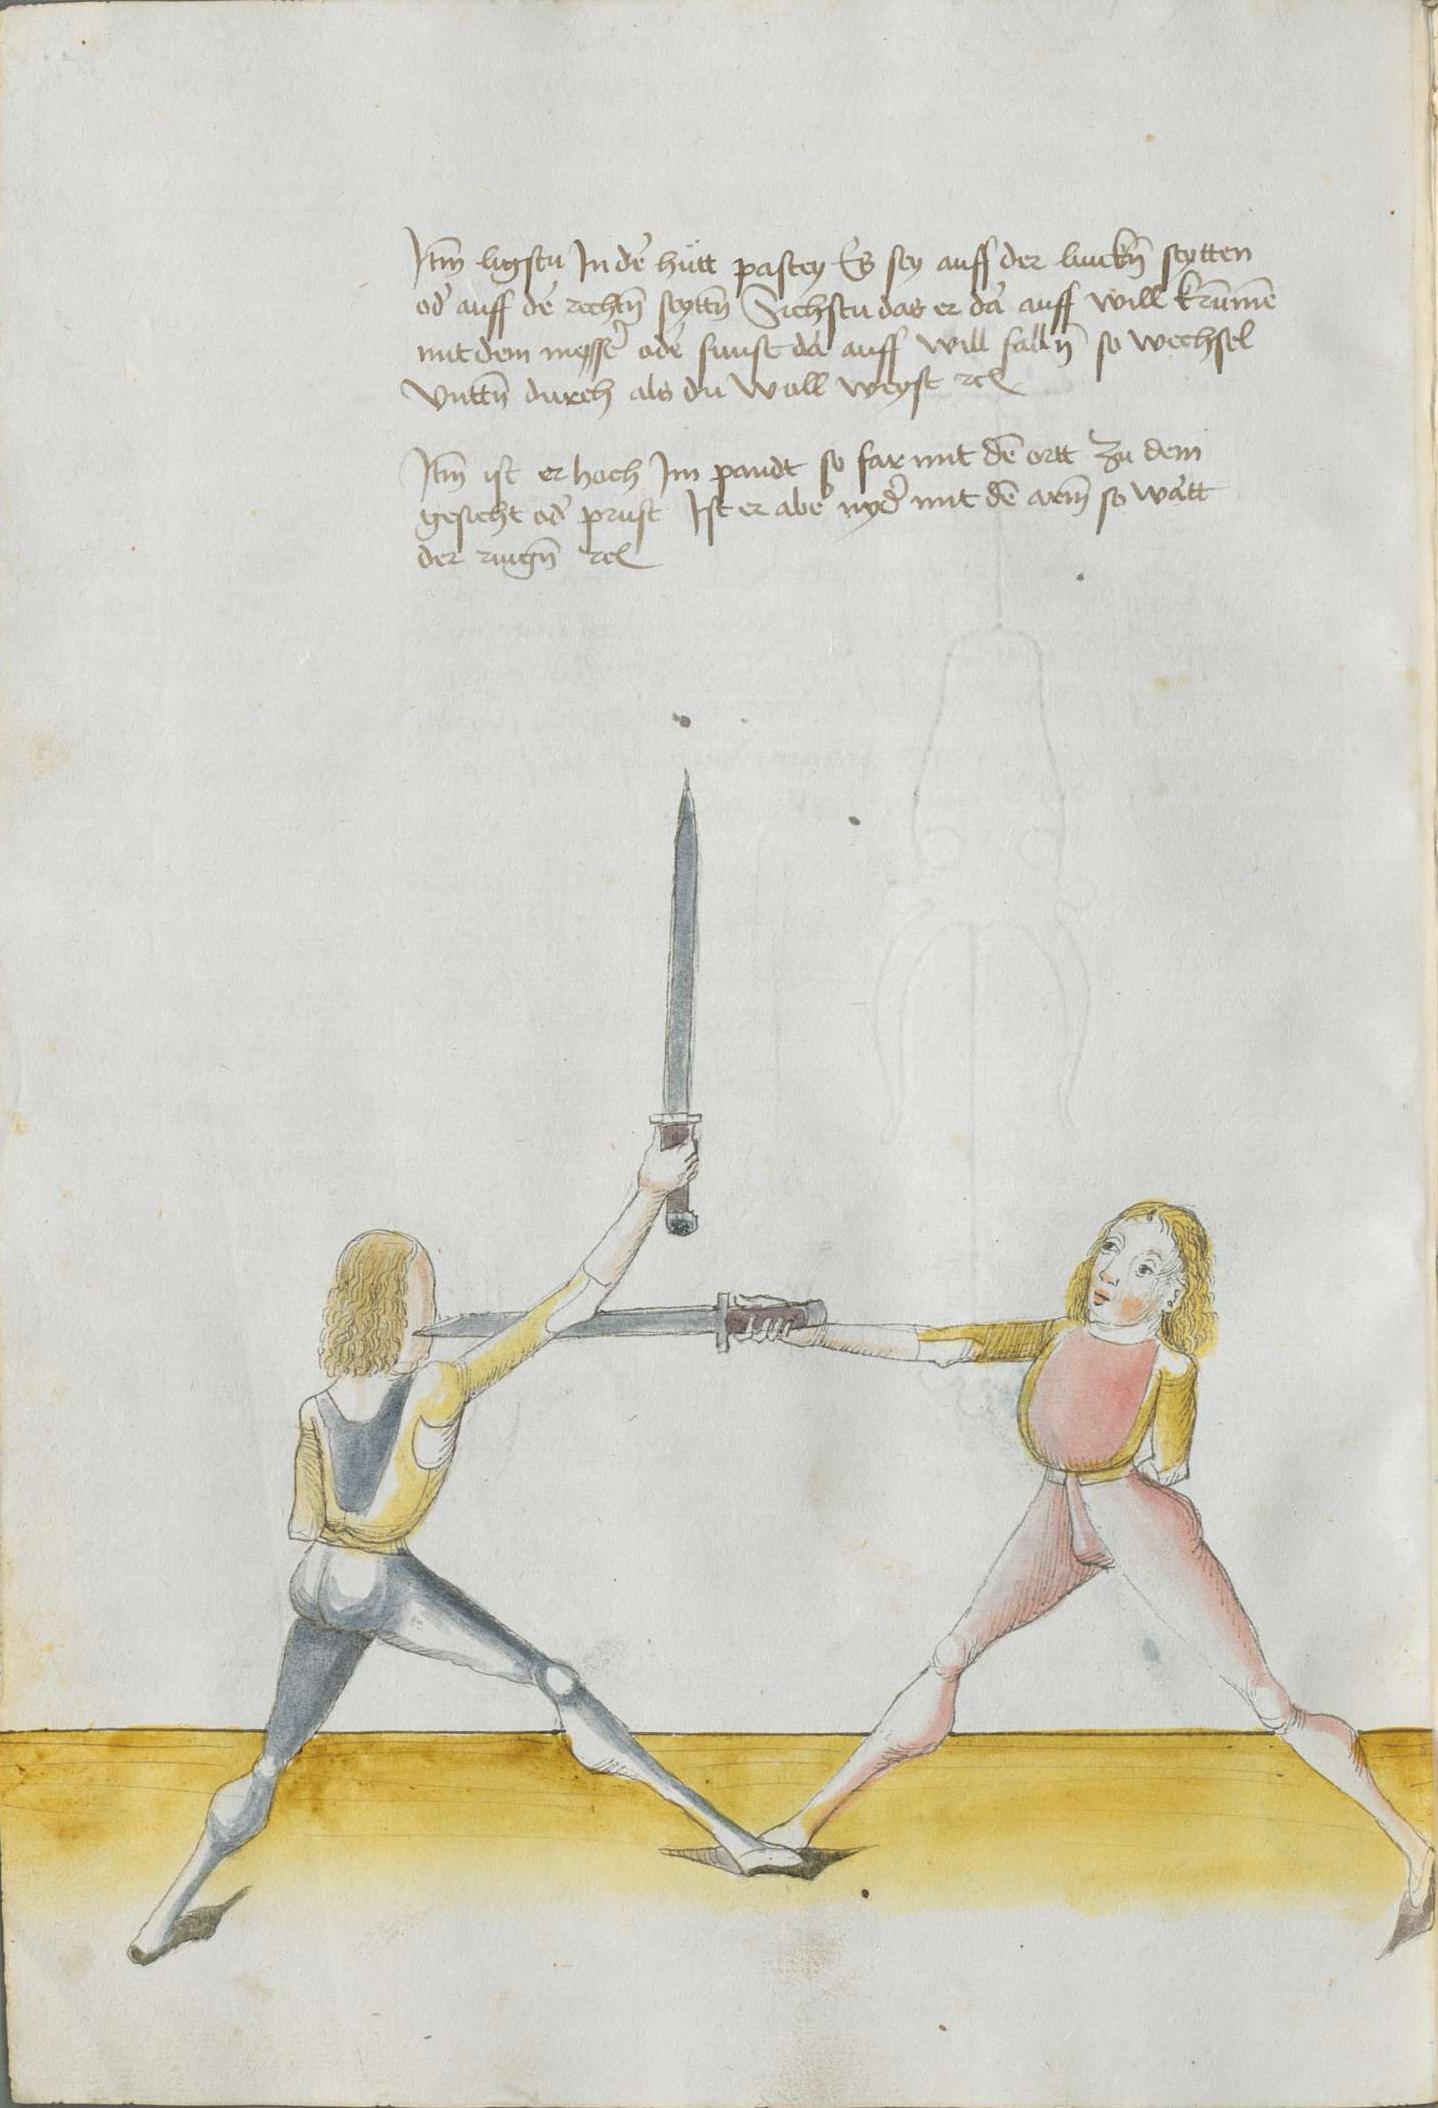 Itm̄ ligstu In de᷑ hütt pastey Es sey auff der linck̄n seytten
od᷑ auff de᷑ recht̄n seytt̄n Siehstu das er da᷑ auff will krūmē
mit dem messe᷑ ode᷑ sunst da᷑ auff will falln̄ so wechsel
Vntt̄n durch als du woll weyst rcͣ
Itm̄ ist er hoch Im pandt so far mit dē ortt zu dem
gesicht od᷑ prust Ist er abe᷑ nyd᷑ mit dē arm̄ so wa᷑tt
der rinḡn rcͣ